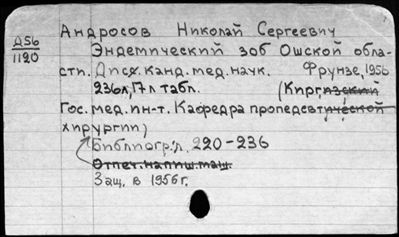 Андросов Николай Сергеевич
Д56
1120
Эндемический зоб Ошской обла-
сти. Дисс. канд. мед. наук. Фрунзе, 1956
236л, 17л табл. (Киргизский
Гос. мед. ин-т. Кафедра пропедевтической
хирургии)
Библиогр: л. 220-236
Отпеч. на пиш. маш.
Защ. в 1956г.